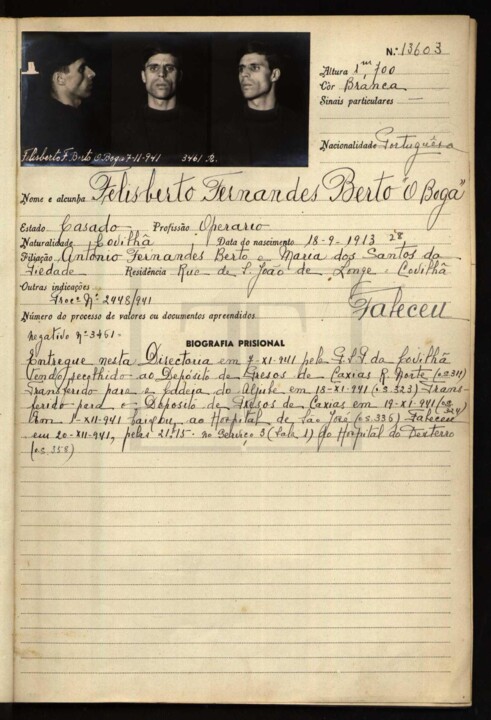 N.º 13603
Altura 1m,700
Côr Branca
Sinais particulares —
Nacionalidade Portuguêsa
Felisberto F. Berto O Boga 7-11-941 3461 R.
Nome e alcunha Felisberto Fernandes Berto "O Boga"
Estado Casado Profissão Operario
Naturalidade Covilhã Data do nascimento 18-9-1913 28
Filiação António Fernandes Berto e Maria dos Santos da
Piedade Residência Rua de S. João de Longe - Covilhã
Outras indicações
Procº Nº 2448/941
Faleceu
Número do processo de valores ou documentos apreendidos
Negativo nº 3461-
BIOGRAFIA PRISIONAL
Entregue nesta Directoria em 7-XI-941 pela da Covilhã
tendo recolhido ao Depósito de Presos de Caxias R. Norte (o.s. 311)
Transferido para a Cadeia do Aljube em 18-XI-941 (o.s. 323) Trans-
ferido para o Depósito de Presos de Caxias em 19-XI-941 (o.s. 324)
Em 1-XII-941 baixou ao Hospital de São José (o.s. 336) Faleceu
em 20-XII-941, pelas 21,15- no Serviço 3 (Sala 1) do Hospital do Desterro
(o.s. 358)